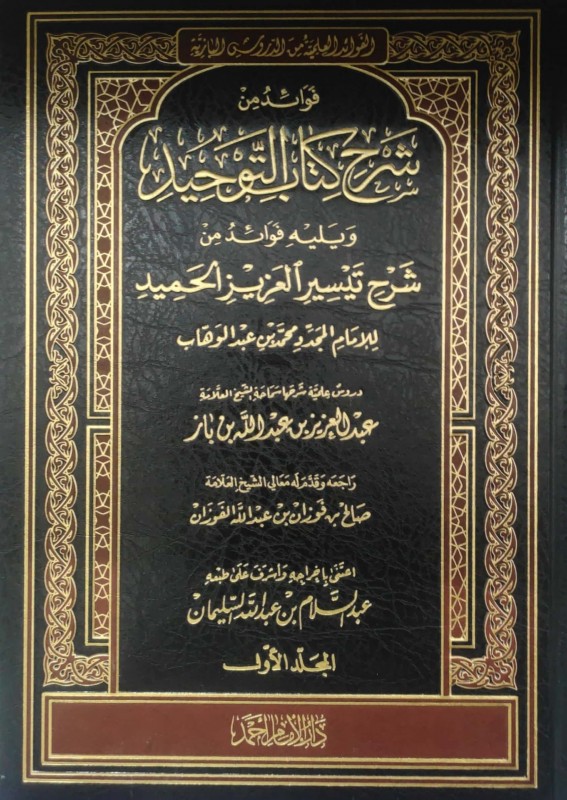 الفوائد العلمية من الدروس البازية
فوائد من
شرح كتاب التوحيد
ويليه فوائد من
شرح تيسير العزيز الحميد
للإمام المجدد محمد بن عبد الوهاب
دروس علمية شرحها سماحة الشيخ العلامة
عبد العزيز بن عبد الله بن باز
راجعه وقدم له معالي الشيخ العلامة
صالح بن فوزان بن عبد الله الفوزان
اعتنى بإخراجه وأشرف على طبعه
عبد السلام بن عبد الله السليمان
المجلد الأول
دار الإمام أحمد